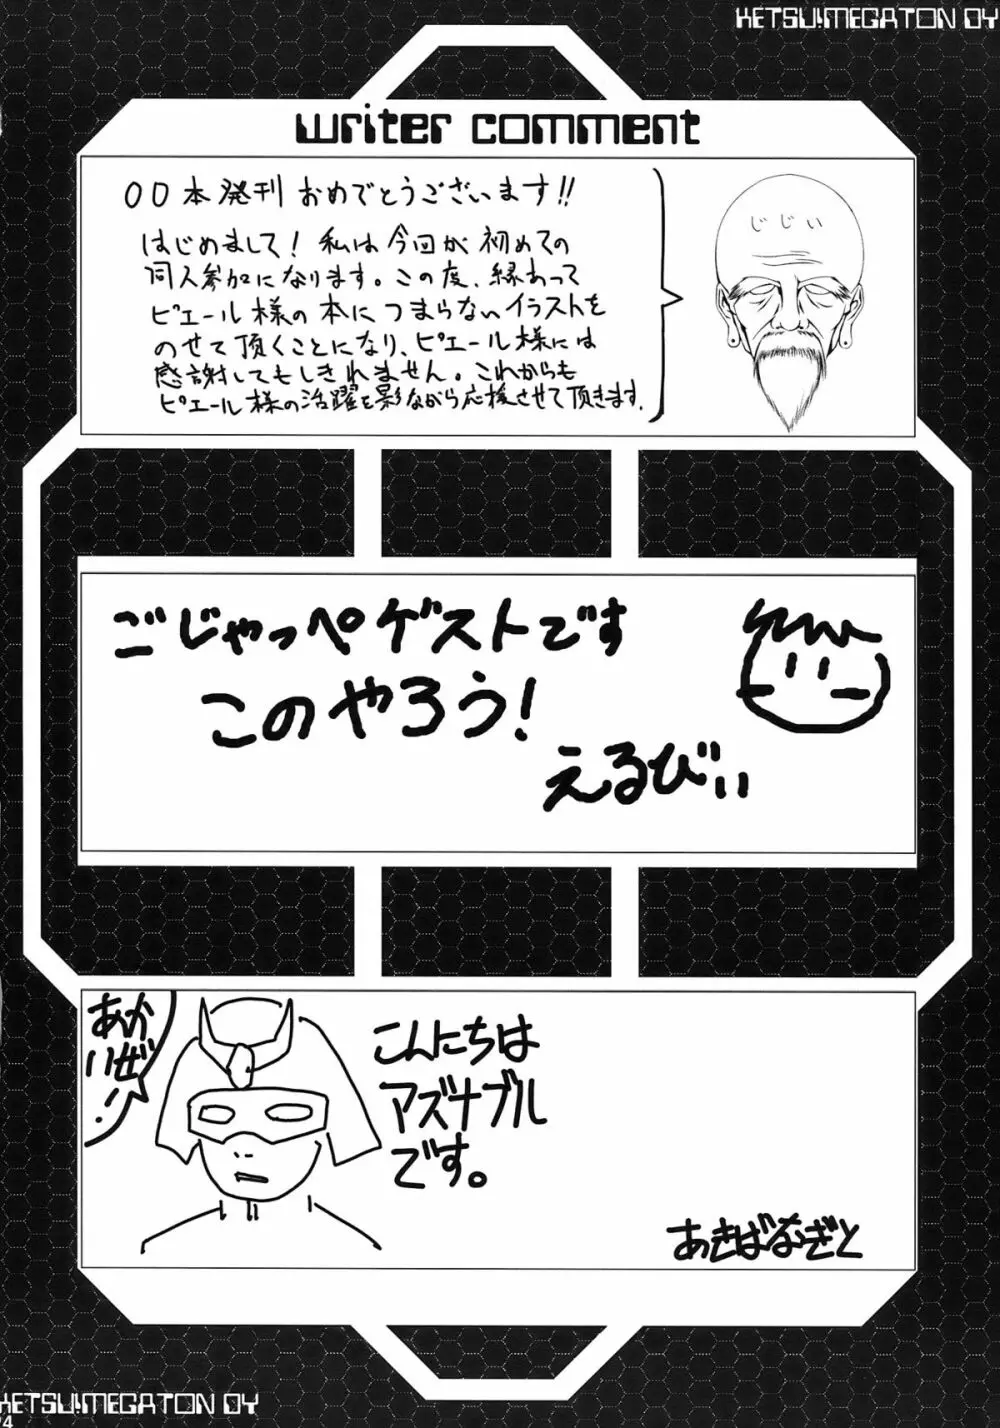 KETSU!MEGATON OY
writer comment
OO本発刊 おめでとうございます!!
はじめまして! 私は今回が初めての
同人参加になります。この度、縁あって
ピエール様の本につまらないイラストを
のせて頂くことになり、ピエール様には
感謝してもしきれません。これからも
ピエール様の活躍を影ながら応援させて頂きます.
じじい
ごじゃっぺゲストです
このやろう!
えるびぃ
あか
いぜ!
こんにちは
アズナブル
です。
あきばなぎと
KETSU!MEGATON OY
24